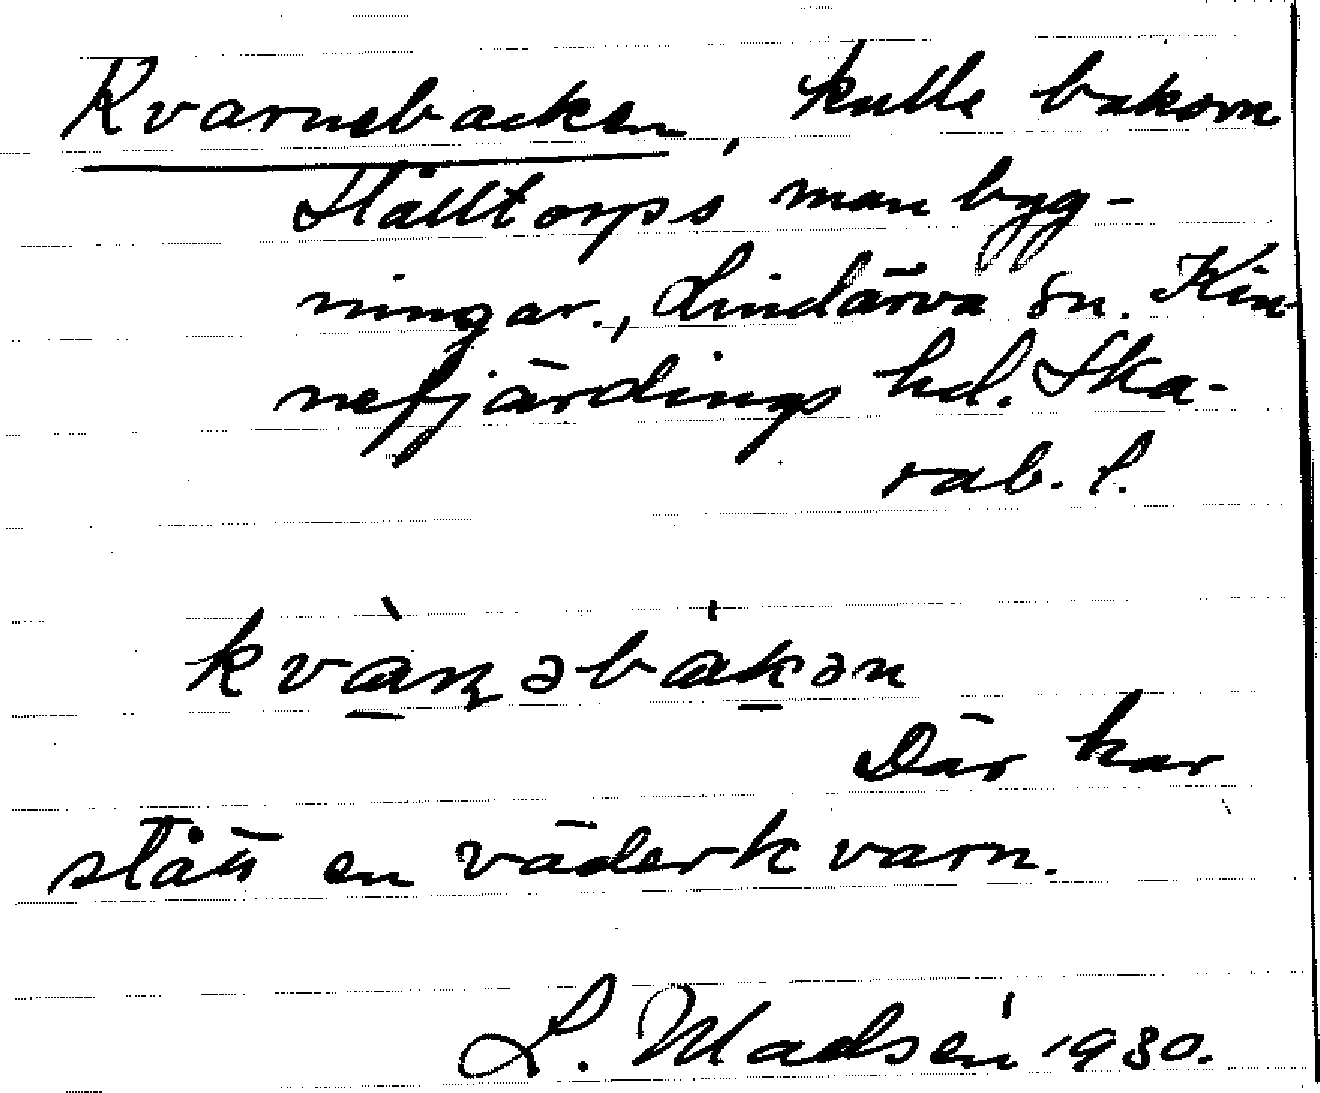 Kvarnebacken, kulle bakom
Ståltorps manbyg-
ningar., Lindärva sn. Kin-
nefjärdings hd. Ska-
rab. l.
kvàɳəbákən
Där har
stått en väderkvarn.
L. Madsén 1930.